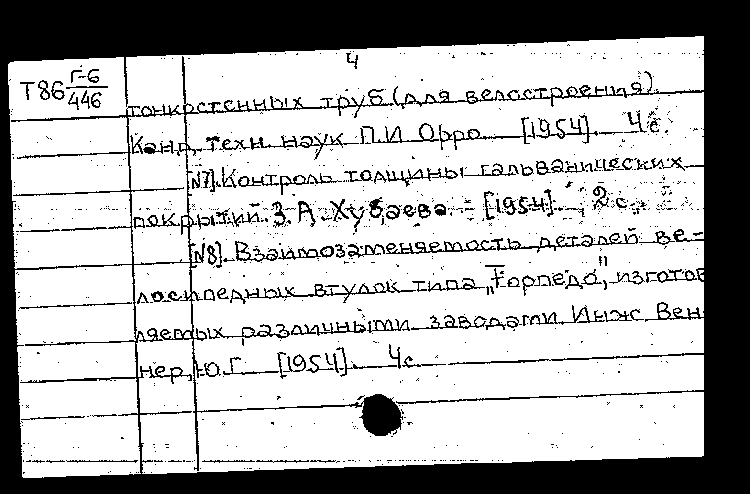 4
Т86 Г-6
446
тонкостенных труб (для велостроения).
Канд. техн. наук П.И Орро. [1954]. 4с.
[N7]. Контроль толщины гальванических
покрытий. З.А. Хубаева. - [1954]. 2с.
[N8]. Взаимозаменяемость деталей ве-
лосипедных втулок типа „Торпедо", изготов
ляемых различными заводами. Инж. Вен-
нер, Ю.Г. [1954]. 4с.